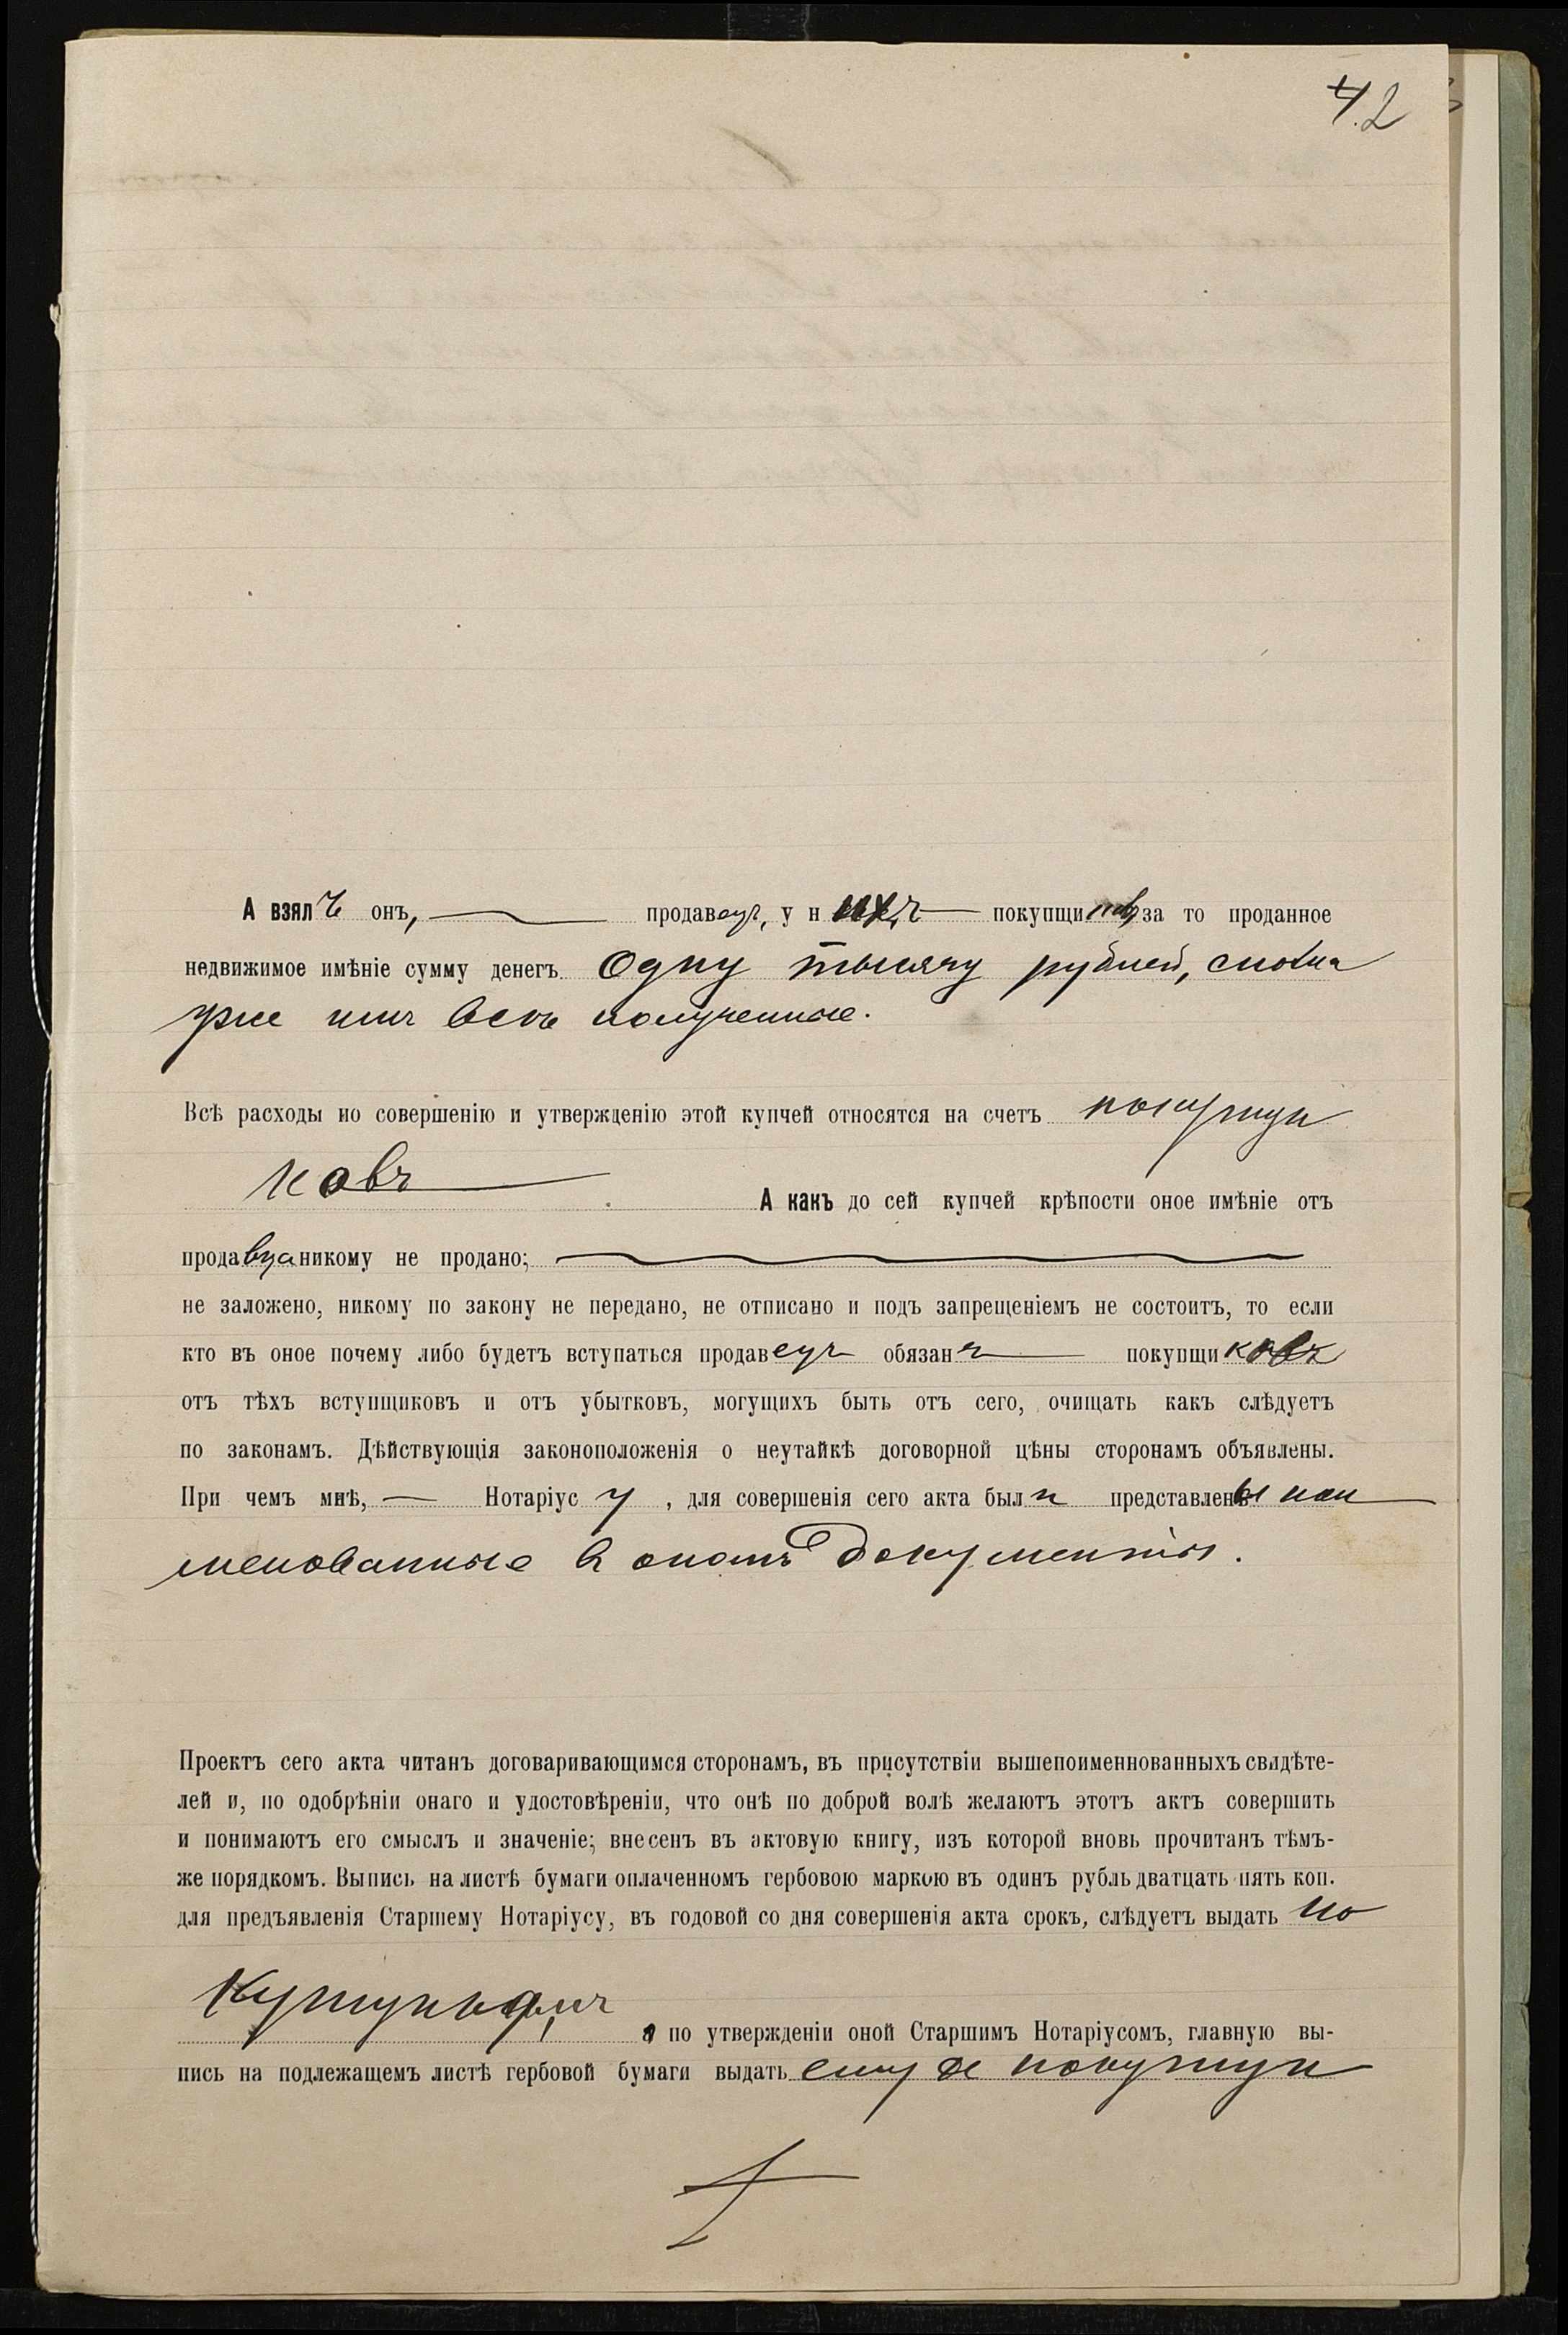 42
А взялъ онъ, продавецъ, у нихъ покупщиковъ, за то проданное
недвижимое имѣніе сумму денегъ Одну тысячу рублей, сполна
уже имъ всѣ полученные.
Всѣ расходы по совершенію и утвержденію этой купчей относятся на счетъ покупщи
ковъ
А какъ до сей купчей крѣпости оное имѣніе отъ
продавца никому не продано;
не заложено, никому по закону не передано, не отписано и подъ запрещеніемъ не состоитъ, то если
кто въ оное почему либо будетъ вступаться продавецъ обязанъ покупщиковъ
отъ тѣхъ вступщиковъ и отъ убытковъ, могущихъ быть отъ сего, очищать какъ слѣдуетъ
по законамъ. Дѣйствующія законоположенія о неутайкѣ договорной цѣны сторонамъ объявлены.
При чемъ мнѣ, Нотаріусу, для совершенія сего акта были представлены наи
менованные въ ономъ документы.
Проектъ сего акта читанъ договаривающимся сторонамъ, въ присутствіи вышепоименнованныхъ свидѣте-
лей и, по одобрѣніи онаго и удостовѣреніи, что онѣ по доброй волѣ желаютъ этотъ актъ совершить
и понимаютъ его смыслъ и значеніе; внесенъ въ актовую книгу, изъ которой вновь прочитанъ тѣмъ-
же порядкомъ. Выпись на листѣ бумаги оплаченномъ гербовою маркою въ одинъ рубль двадцать пять коп.
для предъявленія Старшему Нотаріусу, въ годовой со дня совершенія акта срокъ, слѣдуетъ выдать по
купщикамъ,
а по утвержденіи оной Старшимъ Нотаріусомъ, главную вы-
пись на подлежащемъ листѣ гербовой бумаги выдать ему же покупщи